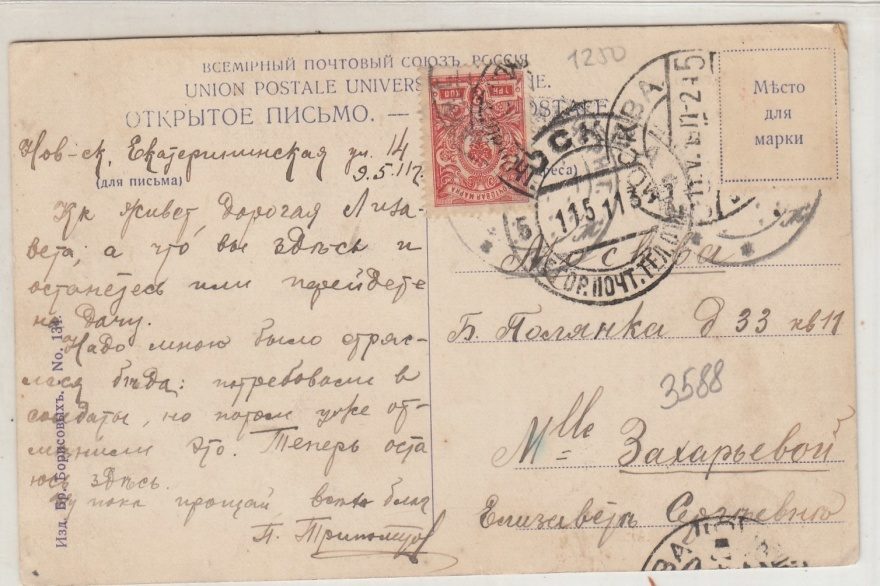 ВСЕМІРНЫЙ ПОЧТОВЫЙ СОЮЗЪ РОССІЯ
UNION POSTALE UNIVERS
ОТКРЫТОЕ ПИСЬМО. —
1250
Мѣсто
для
марки
Нов-ск, Екатерининская ул. 14
9.5.11
(для письма)
Как живет дорогая Лиза-
вета, а что, вы здѣсь и
останетесь или перейдете
на дачу.
Надо мною было стряс-
лася бѣда: потребовали в
солдаты, но потом уже от-
менили это. Теперь оста
юсь здѣсь.
Ну пока прощай
П.
Изд. Бр. Борисовыхъ. No. 134.
МОСКВА
11 5 11
ГОР.ПОЧТ.ТЕЛ.
Москва
Б. Полянка д 33 кв 11
3588
Mlle Захарьевой
Елизаветѣ Сергѣевнѣ